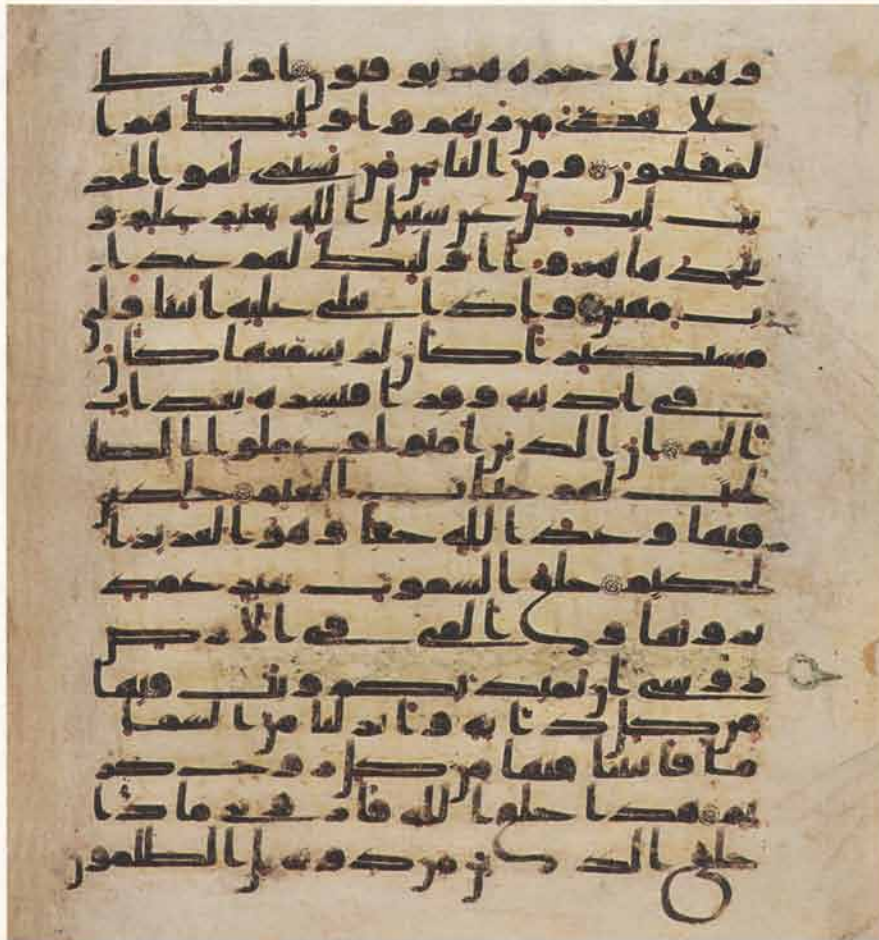 و هم بالاخره هم يوقنون اوليك
علا هدى من ربهم و اوليك هم ا
لمفلحون و من الناس من يشترى لهو الحد
يث ليضل عن سبيل الله بغير علم و
يتخذها هزوا اوليك لهم عذا
ب مهين و اذا تتلى عليه ايتنا ولى
مستكبرا كان لم يسمعها كان
فى اذنيه وقرا فبشره بعذاب
اليم ان الذين امنوا و عملوا الصا
لحت لهم جنات النعيم خلدين
فيها وعد الله حقا و هو العزيز ا
لحكيم خلق السموت بغير عمد
ترونها و القى فى الارض
روسى ان تميد بكم و بث فيها
من كل دابه و انزلنا من السما
ما فانبتنا فيها من كل زوج كر
يم هذا خلق الله فارونى ماذا
خلق الذين من دونه بل الظلمون